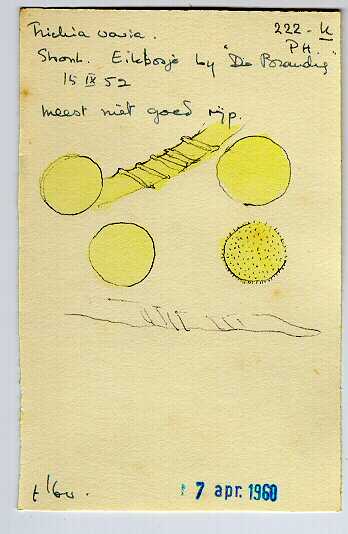 Trichia varia.
222-K
Stronk. Eikbosje by "De Branding"
PH.
15 IX 52
meest niet goed rijp.
7 apr. 1960